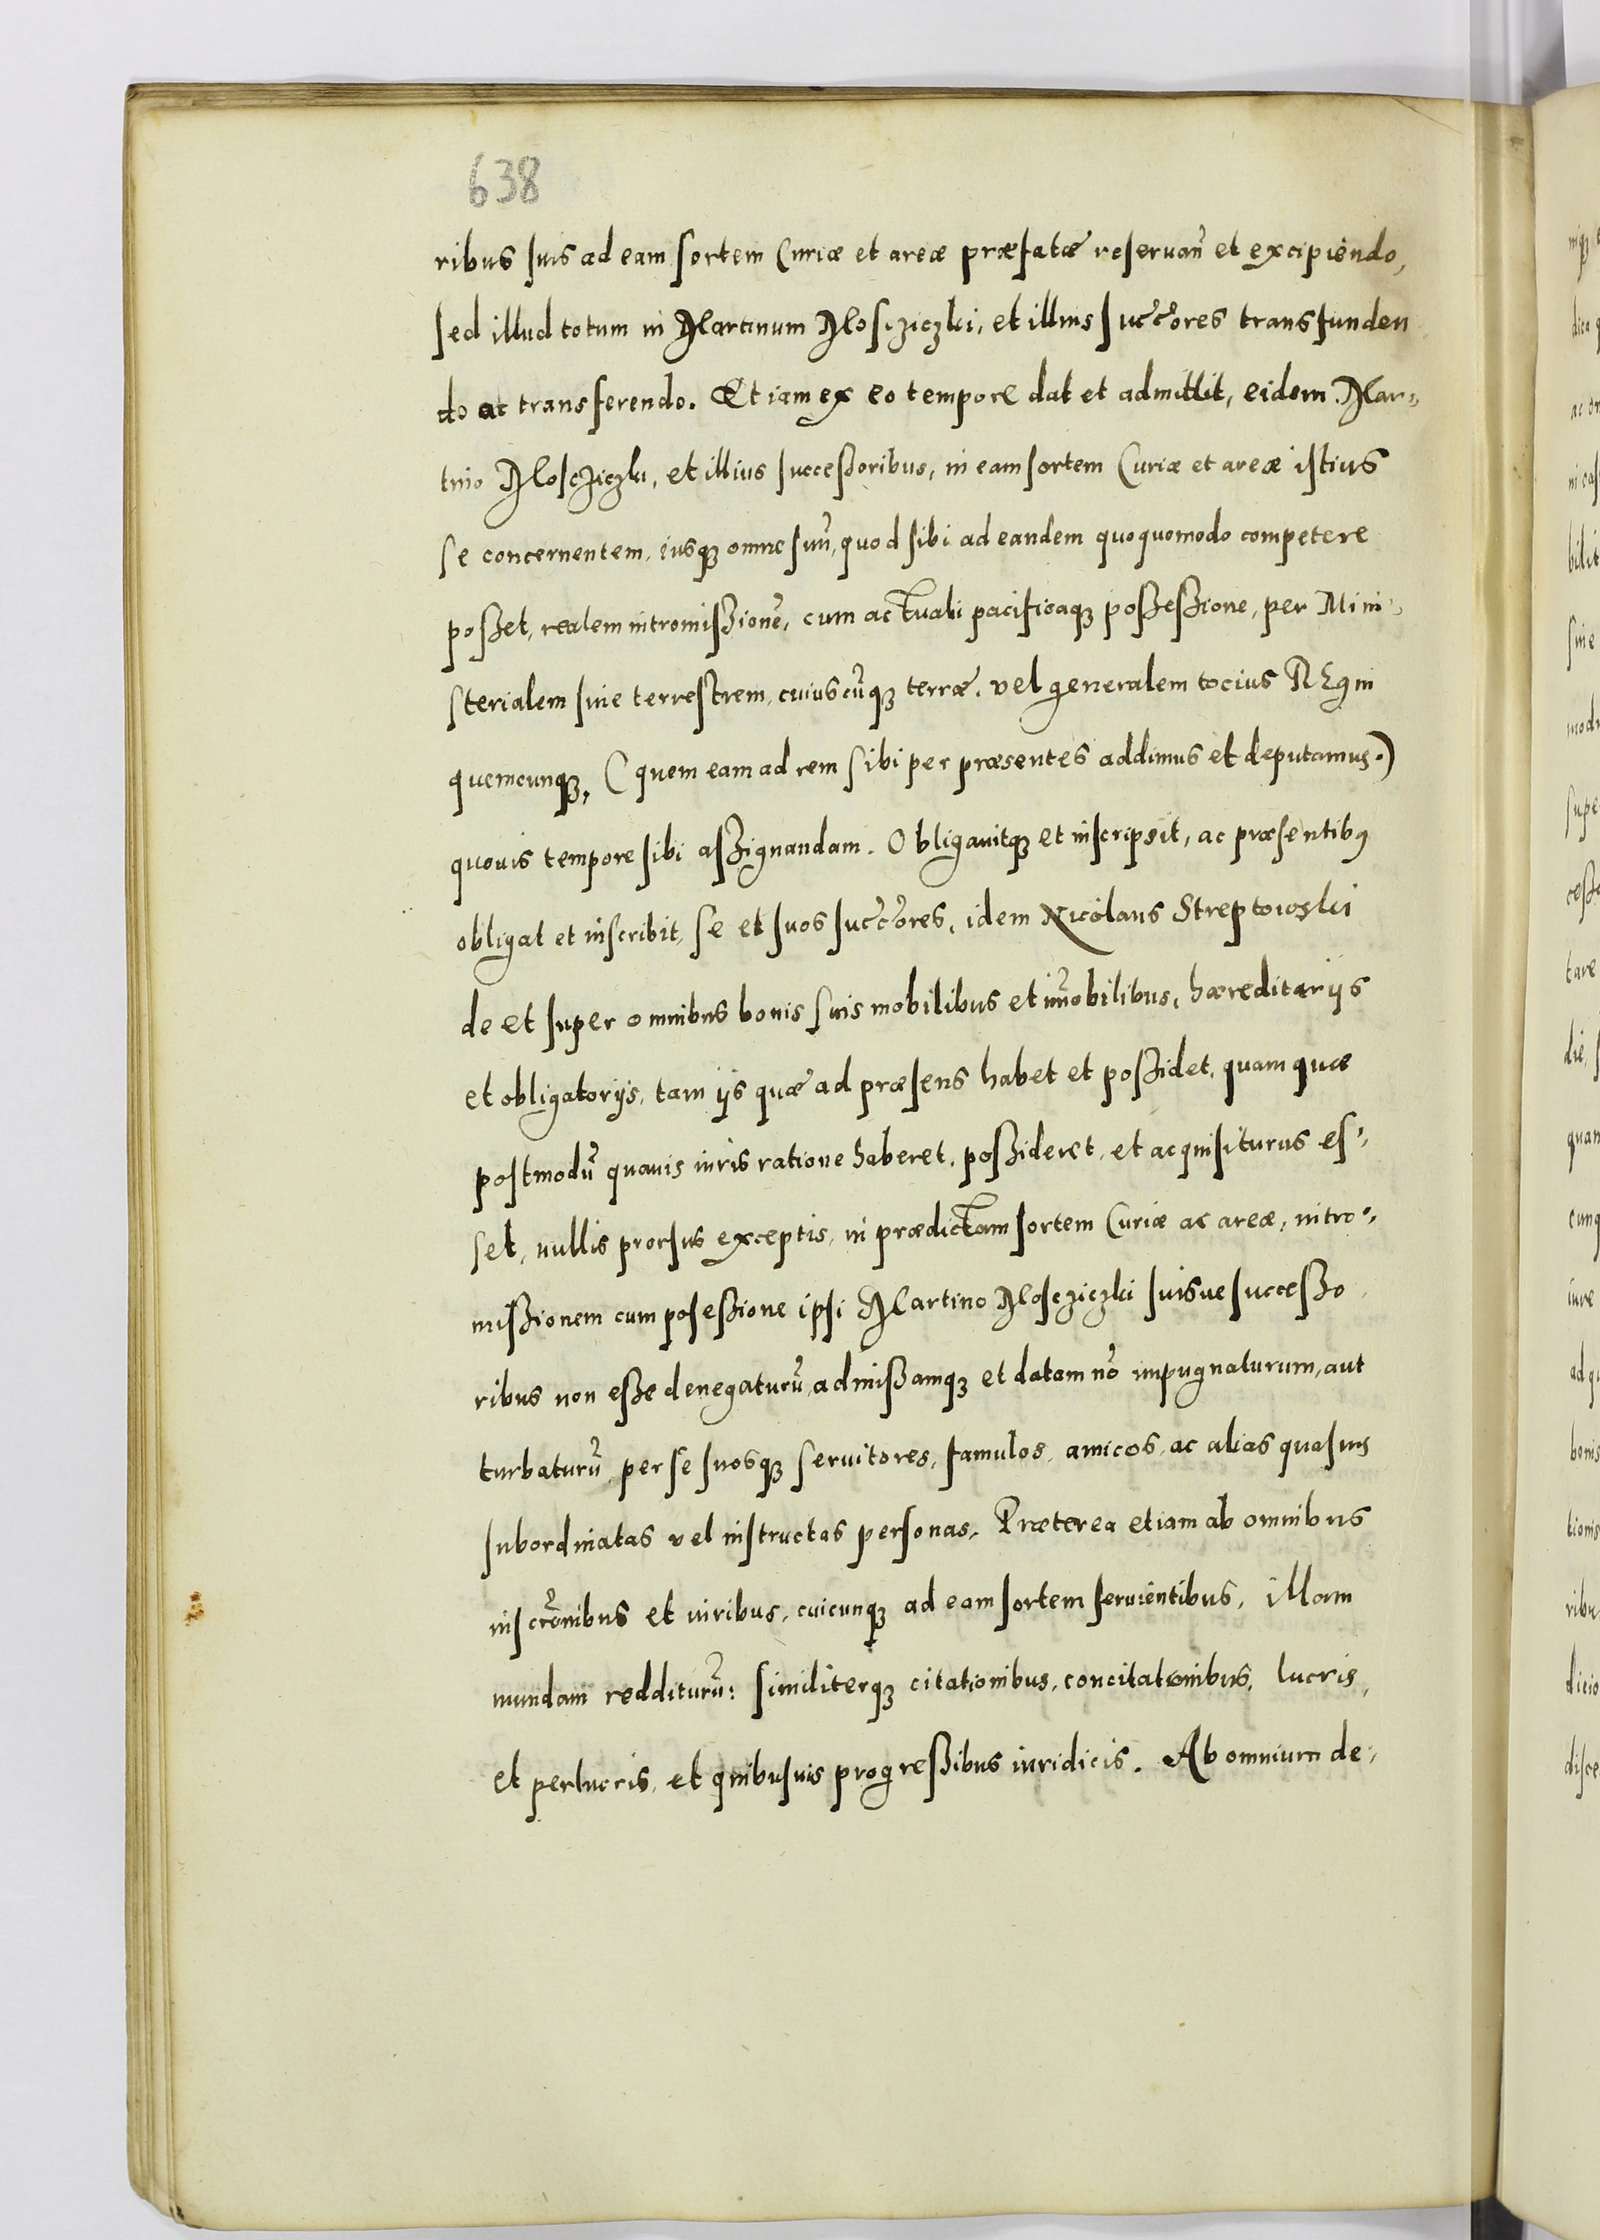 638
ribus suis ad eam sortem Curiæ et areæ præfatæ reseruan̄ et excipiendo,
sed illud totum in Martinum Moscziczki, et illius succ̄ores transfunden
do ac transferendo. Et iam ex eo tempore dat et admittit, eidem Mar=
tino Moscziczki, et illius successoribus, in eam sortem Curiæ et areæ istius
se concernentem, iusq3 omne suū, quod sibi ad eandem quoquomodo competere
posset, realem intromissionē, cum actuali pacificaq3 possessione, per Mini=
sterialem siue terrestrem, cuiuscūq3 terræ, vel generalem tocius REgni
quemcunq3, (quem eam ad rem sibi per præsentes addimus et deputamus.)
quouis tempore sibi assignandam. Obligauitq3 et inscripsit, ac præsentib9
obligat et inscribit, se et suos succ̄ores, idem Nicolaus Streptowski
de et super omnibus bonis suis mobilibus et im̄obilibus, hæreditarijs
et obligatorijs, tam ijs quæ ad præsens habet et possidet, quam quæ
postmodū quauis iuris ratione haberet, possideret, et acquisiturus es=
set, nullis prorsus exceptis, in prædictam sortem Curiæ ac areæ, intro=
missionem cum posessione ipsi Martino Moscziczki suisue successo
ribus non esse denegaturū, admissamq3 et datam nō impugnaturum, aut
turbaturū, per se suosq3 seruitores, famulos, amicos, ac alias quasuis
subordinatas vel instructas personas. Præterea etiam ab omnibus
inscr̄onibus et iuribus, cuicunq3 ad eam sortem seruientibus, illam
mundam redditurū: similiterq3 citationibus, concitationibus, lucris,
et perlucris, et quibusuis progressibus iuridicis. Ab omnium de=